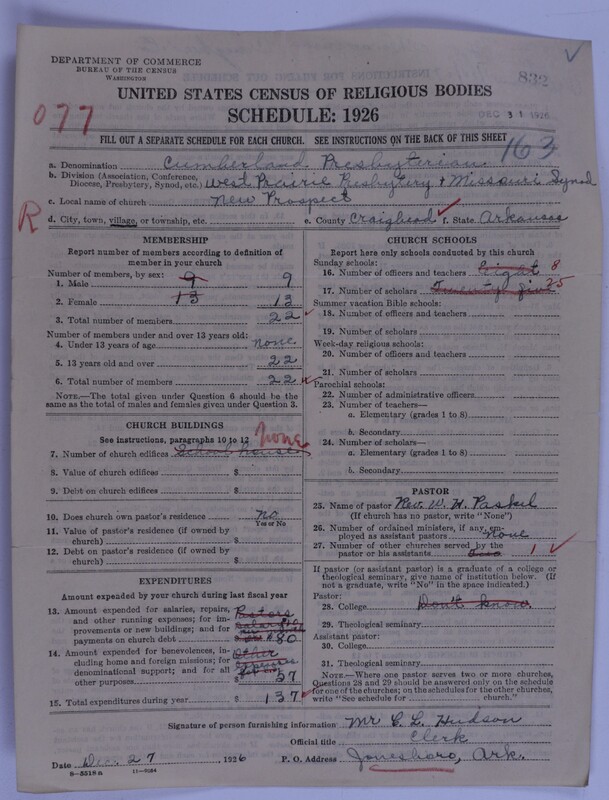 DEPARTMENT OF COMMERCE
BUREAU OF THE CENSUS
WASHINGTON
832
UNITED STATES CENSUS OF RELIGIOUS BODIES
077
SCHEDULE: 1926
DEC 31 1926
FILL OUT A SEPARATE SCHEDULE FOR EACH CHURCH. SEE INSTRUCTIONS ON THE BACK OF THIS SHEET
163
a. Denomination Cumberland Presbyterian
b. Division (Association, Conference, Diocese, Presbytery, Synod, etc.) West Prairie Presbytery + Missouri Synod
c. Local name of church New Prospect
R
d. City, town, village, or township, etc. e. County Craighead f. State Arkansas
MEMBERSHIP
Report number of members according to definition of member in your church
Number of members, by sex:
1. Male 9 9
2. Female 13 13
3. Total number of members 22
Number of members under and over 13 years old:
4. Under 13 years of age none
5. 13 years old and over 22
6. Total number of members 22
NOTE.—The total given under Question 6 should be the same as the total of males and females given under Question 3.
CHURCH BUILDINGS
See instructions, paragraphs 10 to 12
none
7. Number of church edifices School house
8. Value of church edifices $
9. Debt on church edifices $
10. Does church own pastor's residence No
Yes or No
11. Value of pastor's residence (if owned by church) $
12. Debt on pastor's residence (if owned by church) $
EXPENDITURES
Amount expended by your church during last fiscal year
13. Amount expended for salaries, repairs, and other running expenses; for improvements or new buildings; and for payments on church debt Pastors $80
14. Amount expended for benevolences, including home and foreign missions; for denominational support; and for all other purposes Other $ 57
15. Total expenditures during year $ 137
CHURCH SCHOOLS
Report here only schools conducted by this church
Sunday schools:
16. Number of officers and teachers Eight 8
17. Number of scholars Twenty five 25
Summer vacation Bible schools:
18. Number of officers and teachers
19. Number of scholars
Week-day religious schools:
20. Number of officers and teachers
21. Number of scholars
Parochial schools:
22. Number of administrative officers
23. Number of teachers—
a. Elementary (grades 1 to 8)
b. Secondary
24. Number of scholars—
a. Elementary (grades 1 to 8)
b. Secondary
PASTOR
25. Name of pastor Rev. W. H. Paskel
(If church has no pastor, write "None")
26. Number of ordained ministers, if any, employed as assistant pastors none
27. Number of other churches served by the pastor or his assistants 1
If pastor (or assistant pastor) is a graduate of a college or theological seminary, give name of institution below. (If not a graduate, write "No" in the space indicated.)
Pastor:
28. College Don't know
29. Theological seminary
Assistant pastor:
30. College
31. Theological seminary
NOTE.—Where one pastor serves two or more churches, Questions 28 and 29 should be answered only on the schedule for one of the churches; on the schedules for the other churches, write "See schedule for church."
Signature of person furnishing information Mr C. L. Hudson
Official title Clerk
Date Dec. 27, 1926 P. O. Address Jonesboro, Ark.
8-5518a 11-9184